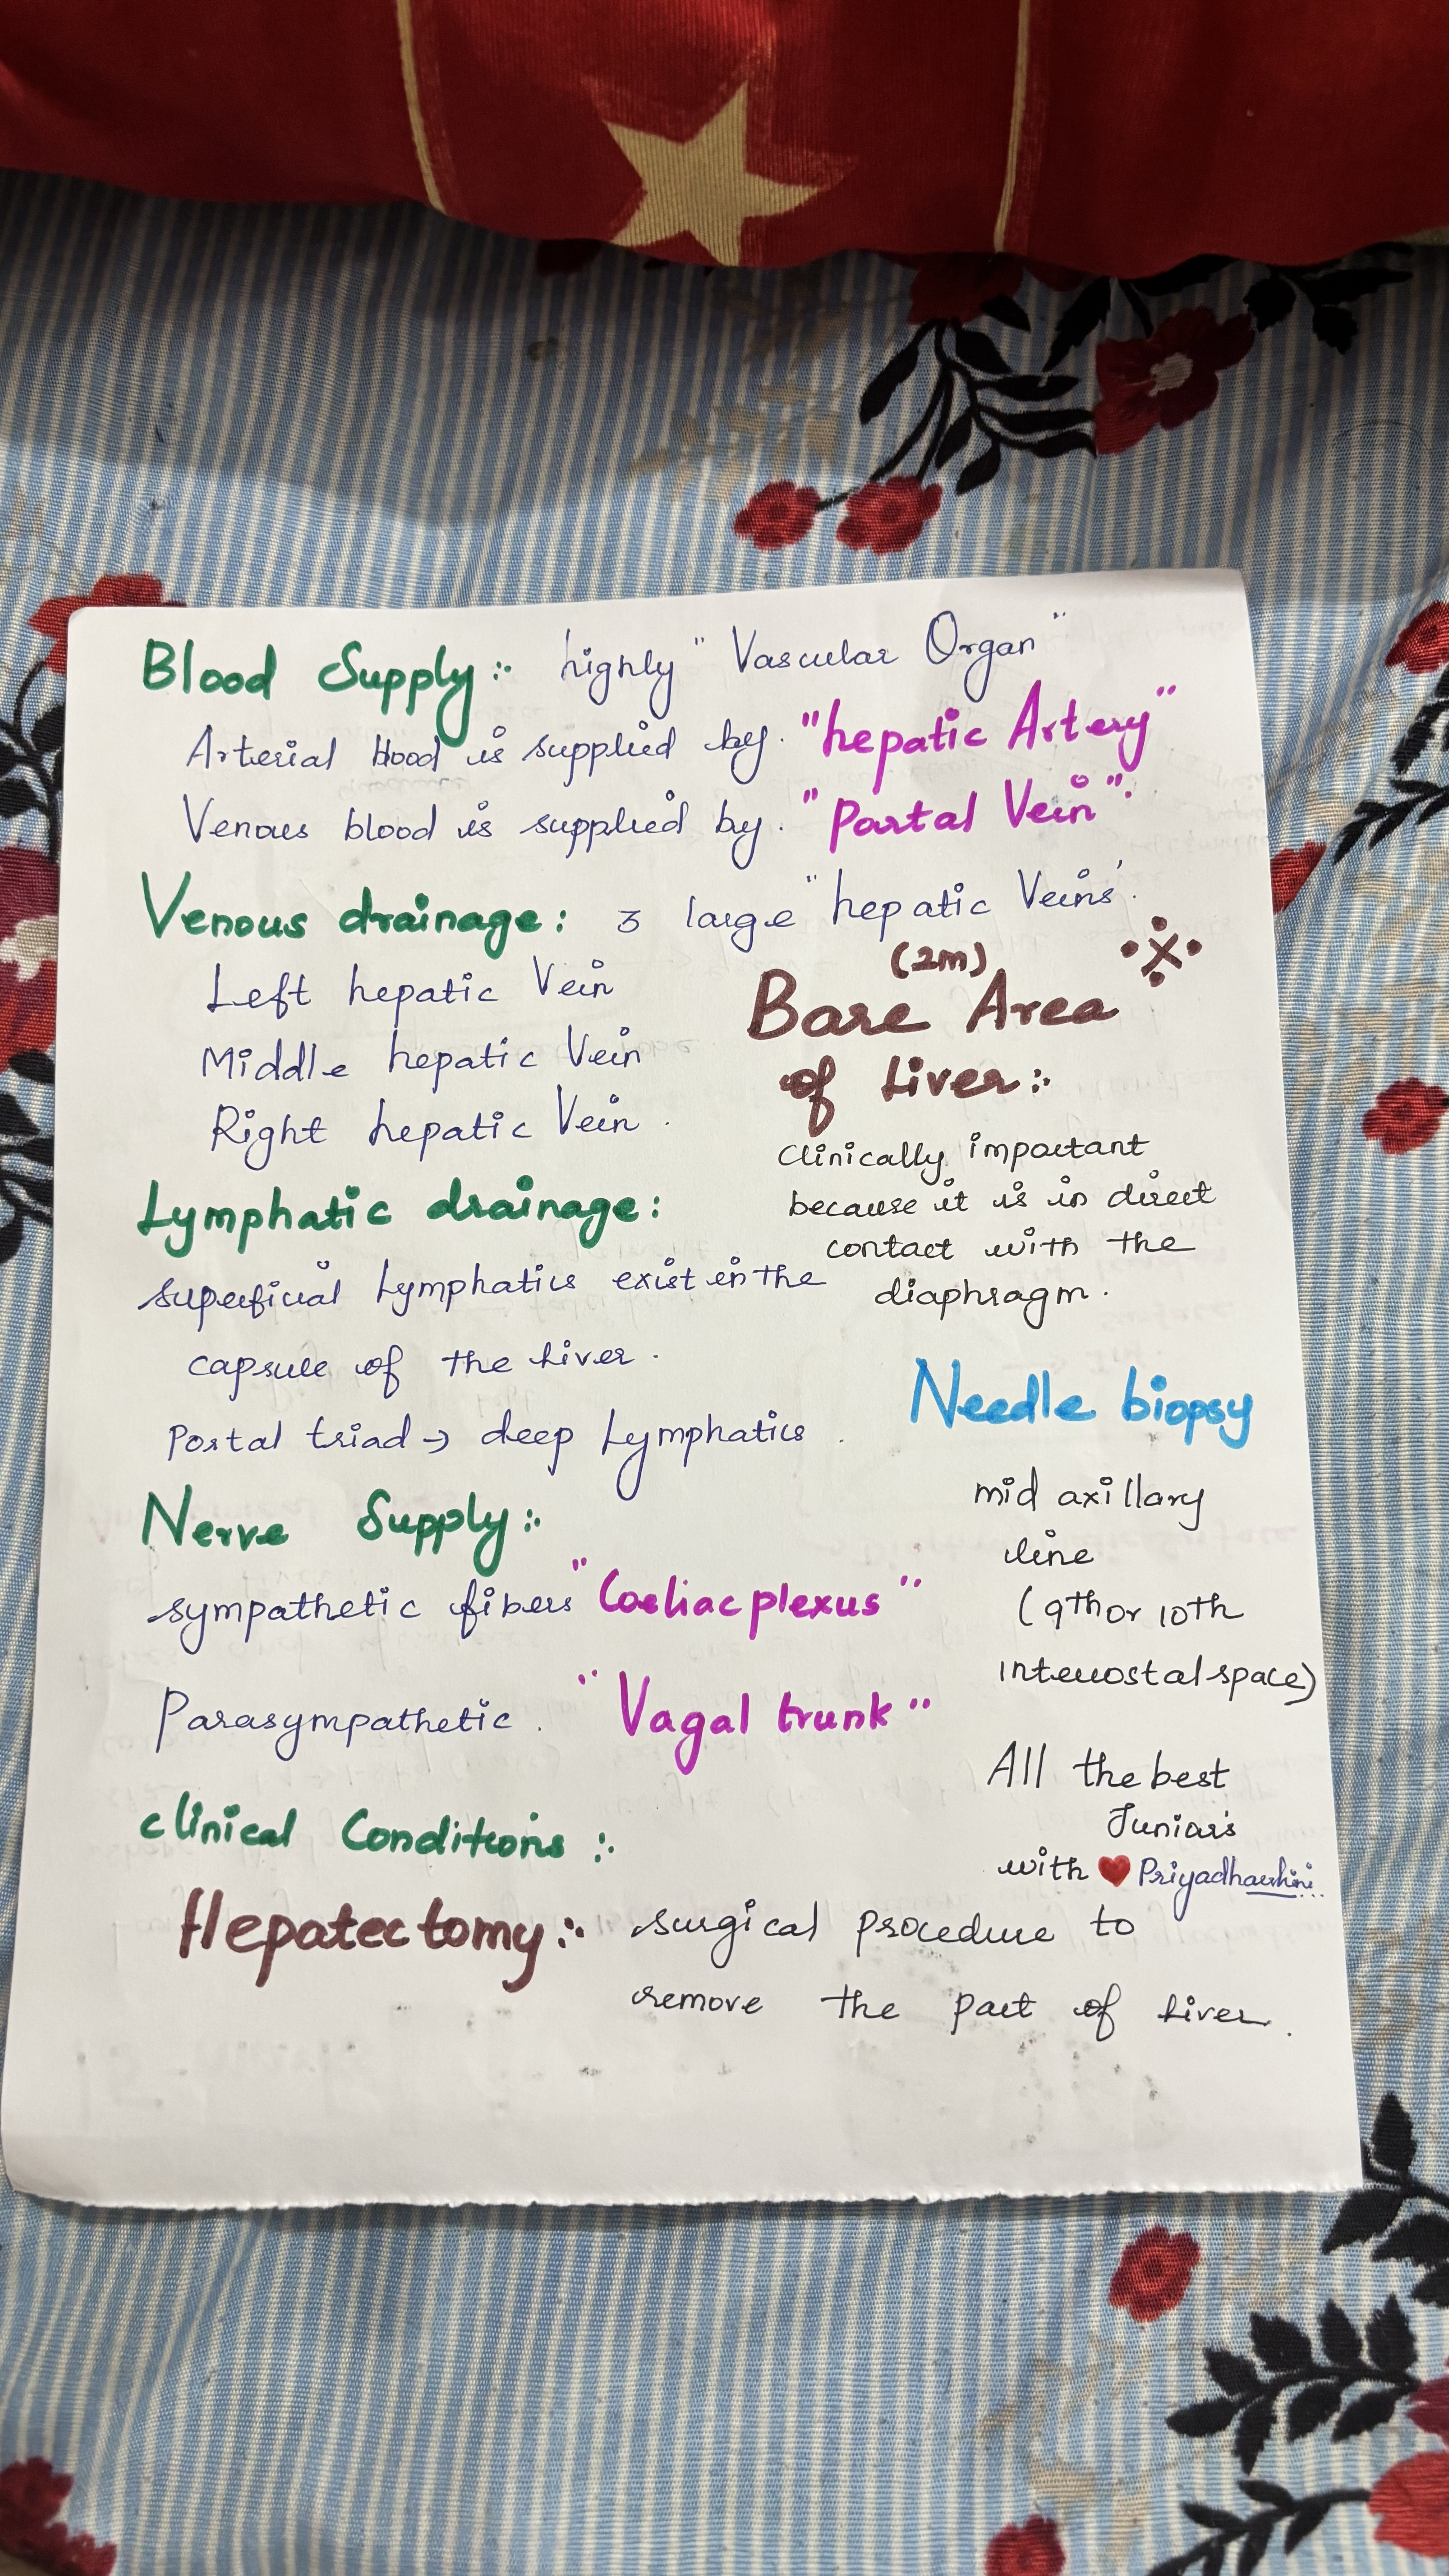 Blood Supply :- highly "Vascular Organ"
Arterial blood is supplied by. "hepatic Artery"
Venous blood is supplied by. "Portal Vein".
Venous drainage: 3 large "hepatic Veins'.
Left hepatic Vein
Middle hepatic Vein
Right hepatic Vein.
(2m)
Bare Area
of Liver :-
Clinically important
because it is in direct
contact with the
diaphragm.
Lymphatic drainage:
superficial Lymphatics exist in the
capsule of the Liver.
Portal triad → deep Lymphatics.
Needle biopsy
mid axillary
line
(9th or 10th
intercostal space)
Nerve Supply :-
sympathetic fibers "Coeliac plexus"
Parasympathetic. "Vagal trunk"
All the best
Juniors
with ❤️ Priyadharshini...
Clinical Conditions :-
Hepatectomy :- surgical procedure to
remove the part of Liver.